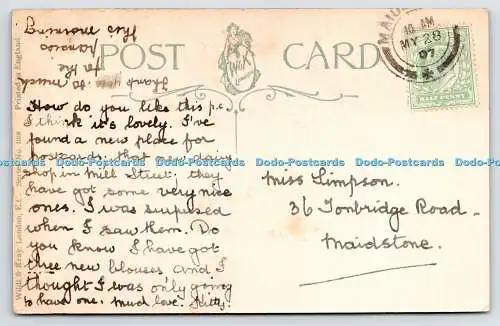 POST CARD
W&K
LONDON
MAIDS
10 AM
MY 28
07
HALF PENNY
Printed in England
Wildt & Kray, London, E.C. Series No. 1108
How do you like this p.c.
I think it's lovely. I've
found a new place for
postcards; that new dairy
shop in Mill Street; they
have got some very nice
ones. I was surpused
when I saw them. Do
you know I have got
three new blouses and I
thought I was only going
to have one. Much love. Kitty.
Miss Simpson.
36 Tonbridge Road
Maidstone.
Dodo-Postcards Dodo-Postcards Dodo-Postcards Dodo-Postcards Dodo-Postcards